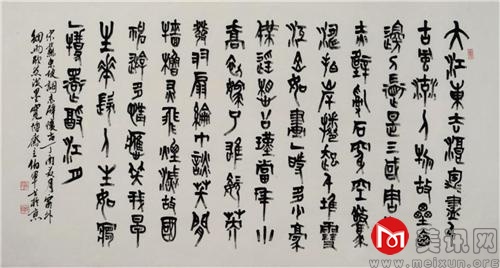 大江東去浪淘盡千
古風流人物故壘西
邊人道是三國周郎
赤壁亂石穿空驚
濤拍岸捲起千堆雪
江山如畫一時多少豪
傑遥想公瑾當年小
喬初嫁了雄姿英
發羽扇綸巾談笑間
檣櫓灰飛煙滅故國
神遊多情應笑我早
生華髮人生如夢
一尊還酹江月
宋蘇東坡詞赤壁懷古丁酉夏月窗外
細雨淺墨寬博齋主伯軍書於京
美讯网
www.meixun.org